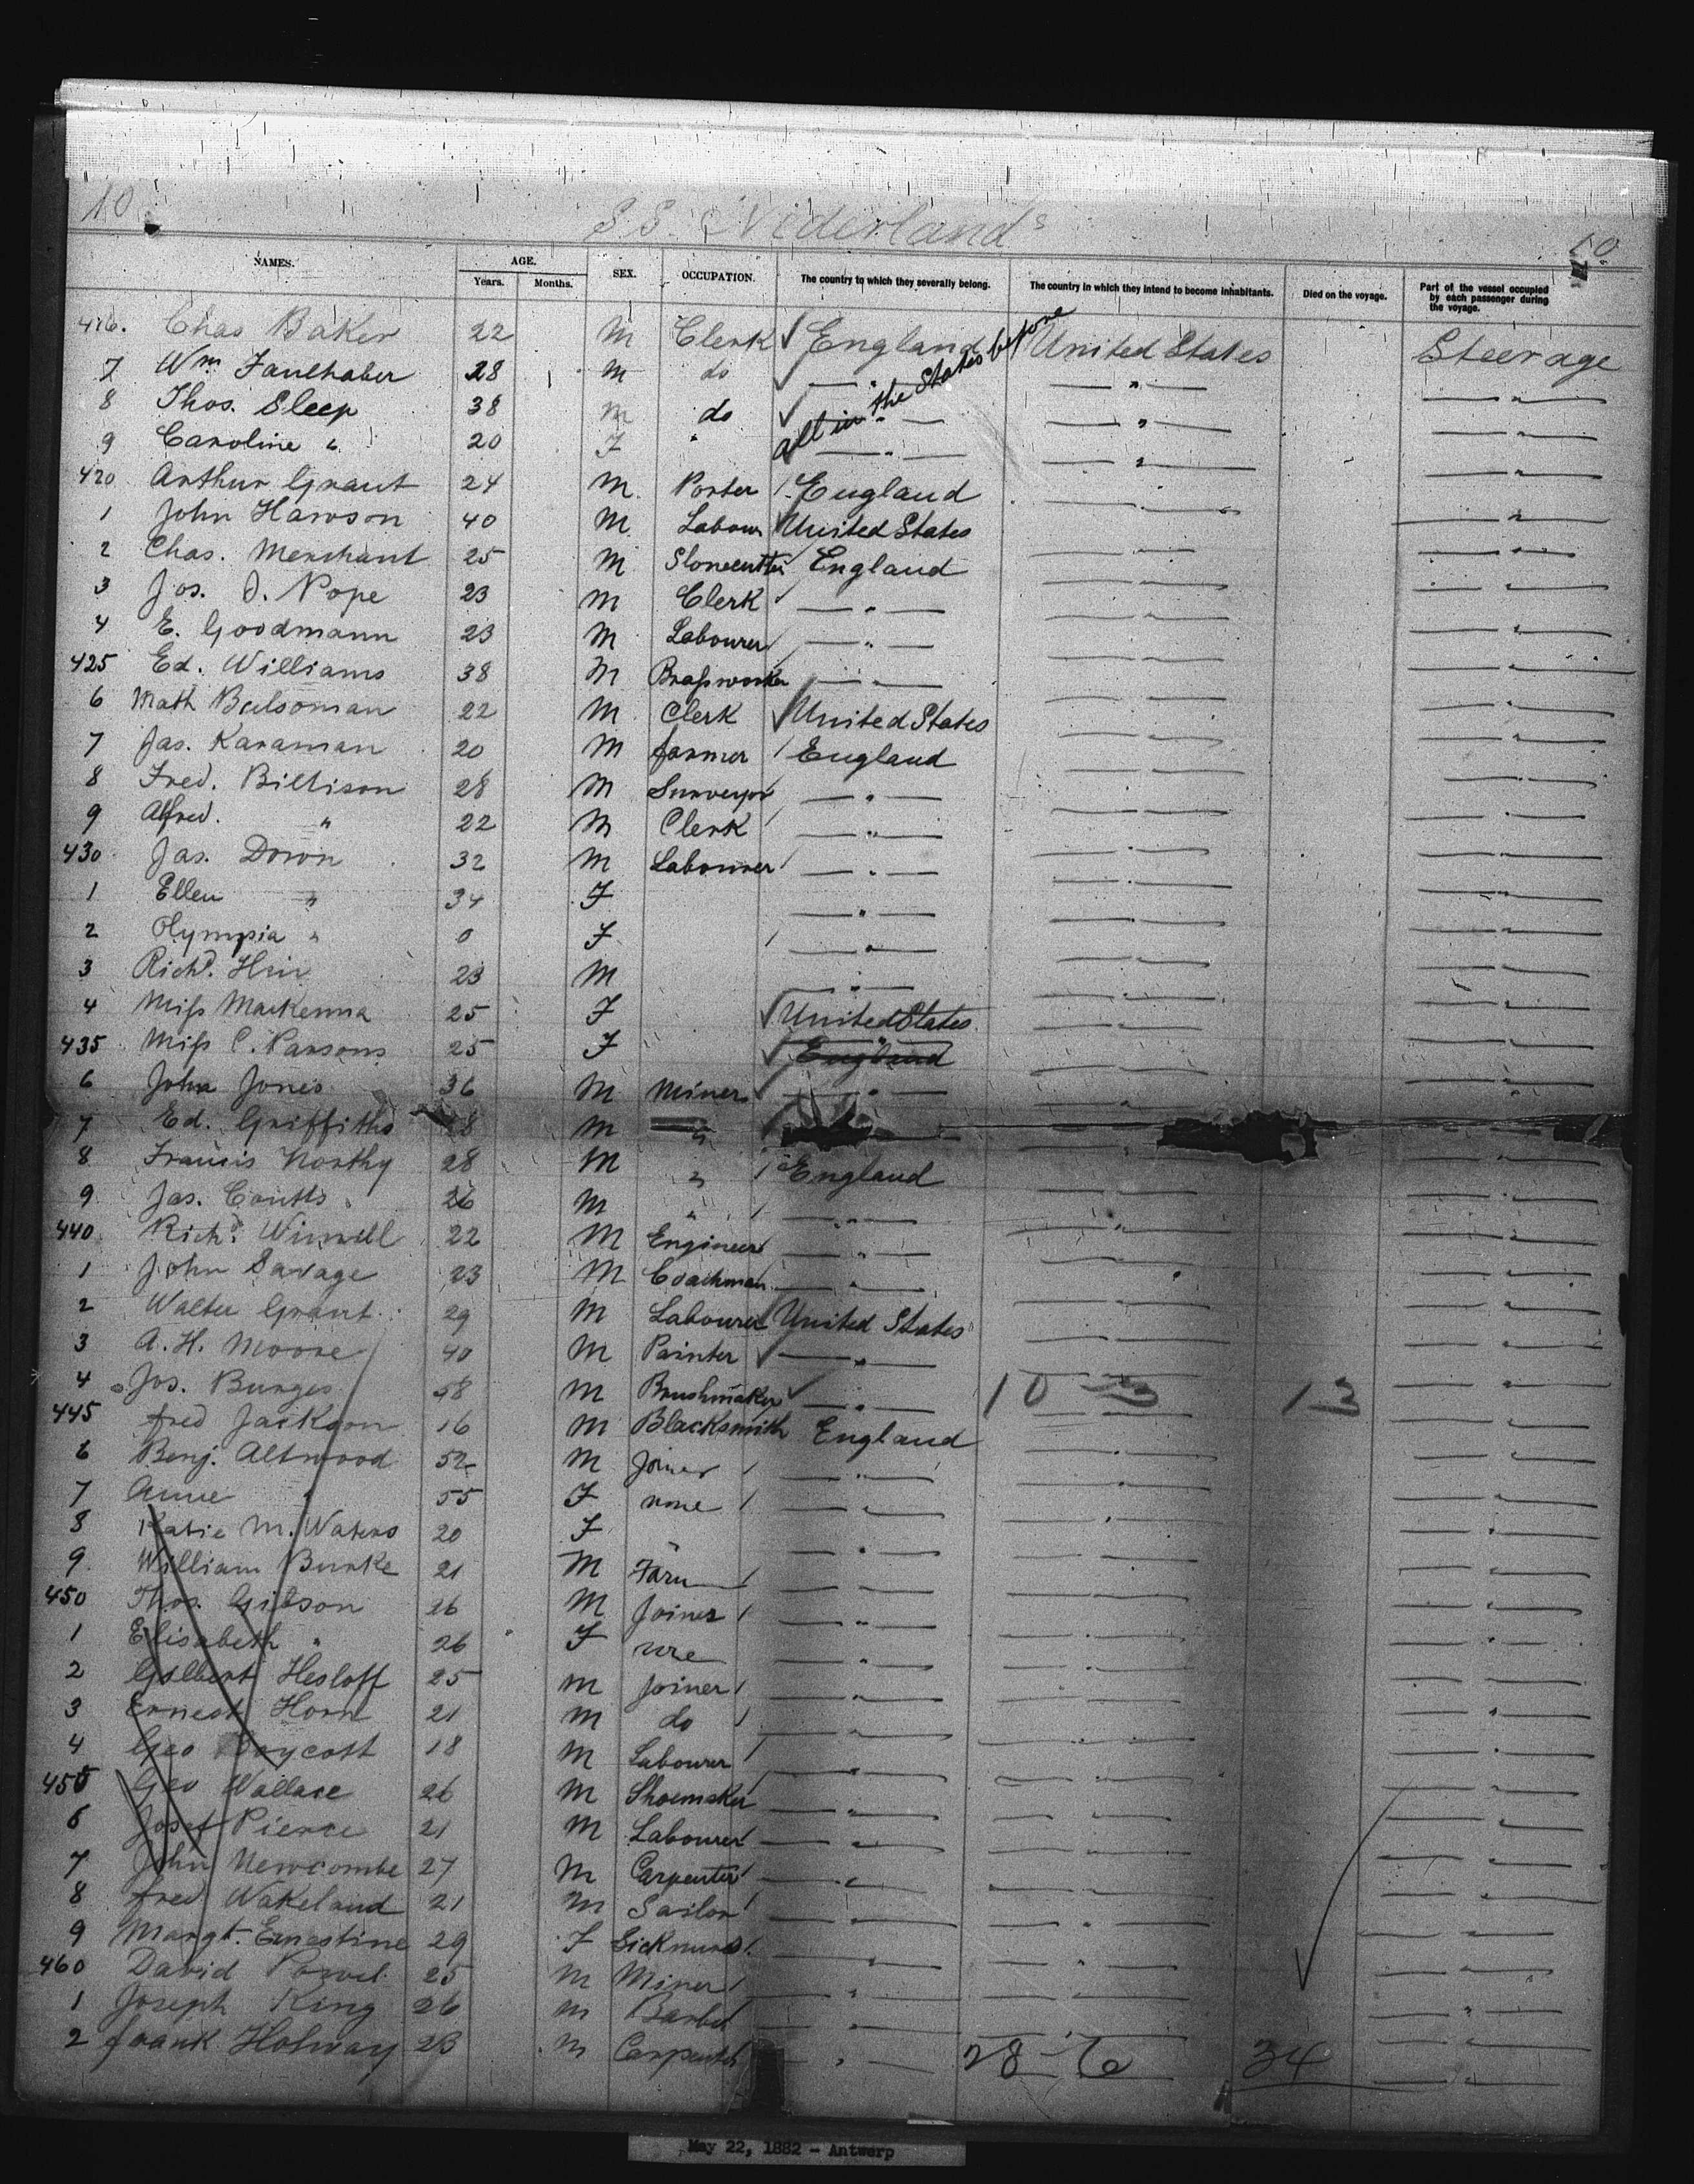 10
S.S. Niderland
10
NAMES. AGE. Years. Months. SEX. OCCUPATION. The country to which they severally belong. The country in which they intend to become inhabitants. Died on the voyage. Part of the vessel occupied by each passenger during the voyage.
all in the States before
416. Chas Baker 22 M Clerk England United States Steerage
7 Wm. Faulhaber 28 M do — " — — " — — " —
8 Thos. Sleep 38 M do — " — — " — — " —
9 Caroline " 20 F " — " — — " — — " —
420 Arthur Grant 24 M Porter England — " — — " —
1 John Hawson 40 M Labour United States — " — — " —
2 Chas. Merchant 25 M Stonecutter England — " — — " —
3 Jos. J. Pope 23 M Clerk — " — — " — — " —
4 E. Goodmann 23 M Labourer — " — — " — — " —
425 Ed. Williams 38 M Brassworker — " — — " — — " —
6 Math 22 M Clerk United States — " — — " —
7 Jas. Karaman 20 M farmer England — " — — " —
8 Fred. Billison 28 M Surveyor — " — — " — — " —
9 Alfred. " 22 M Clerk — " — — " — — " —
430 Jas. Down 32 M Labourer — " — — " — — " —
1 Ellen " 34 F — " — — " — — " —
2 Olympia " 0 F — " — — " — — " —
3 Richd. 23 M — " — — " — — " —
4 Miss MacKenna 25 F United States — " — — " —
435 Miss C. Parsons 25 F England — " — — " —
6 John Jones 36 M Miner — " — — " — — " —
7 Ed. Griffiths 28 M " — " —
8 Francis Northy 28 M " England — " — — " —
9 Jas. Coutts 26 M " — " — — " — — " —
440 Richd. 22 M Engineer — " — — " — — " —
1 John Savage 23 M Coachman — " — — " — — " —
2 Walter Grant 29 M Labourer United States — " — — " —
3 A. H. Moore 40 M Painter — " — — " — — " —
4 Jos. Burges 58 M Brushmaker — " — 10 - 3 13 — " —
445 fred Jackson 16 M Blacksmith England — " — — " —
6 Benj. Altwood 52 M Joiner — " — — " — — " —
7 Anne " 55 F none — " — — " — — " —
8 Katie M. Waters 20 F " — " — — " — — " —
9. William Burke 21 M Farm — " — — " — — " —
450 Thos. Gibson 26 M Joiner — " — — " — — " —
1 Elisabeth " 26 F — " — — " — — " —
2 Gilbert Hesloff 25 M Joiner — " — — " — — " —
3 Ernest Horn 21 M do — " — — " — — " —
4 Geo Boycott 18 M Labourer — " — — " — — " —
455 Geo Wallace 26 M Shoemaker — " — — " — — " —
6 Josef Pierce 21 M Labourer — " — — " — — " —
7 John Newcombe 27 M Carpenter — " — — " — — " —
8 fred Wakeland 21 M Sailor — " — — " — — " —
9 Margt. Ernestine 29 F Sicknurse — " — — " — — " —
460 David 25 M Miner — " — — " — — " —
1 Joseph King 26 M Barber — " — — " — — " —
2 frank Holway 23 M Carpenter — " — 28 - 6 34 — " —
May 22, 1882 - Antwerp